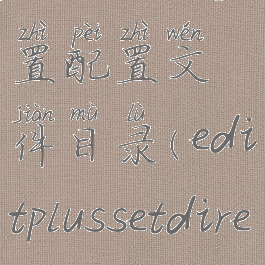 zhì pèi zhì wén
置配置文
jiàn mù lù
件目录(edi
tplussetdire